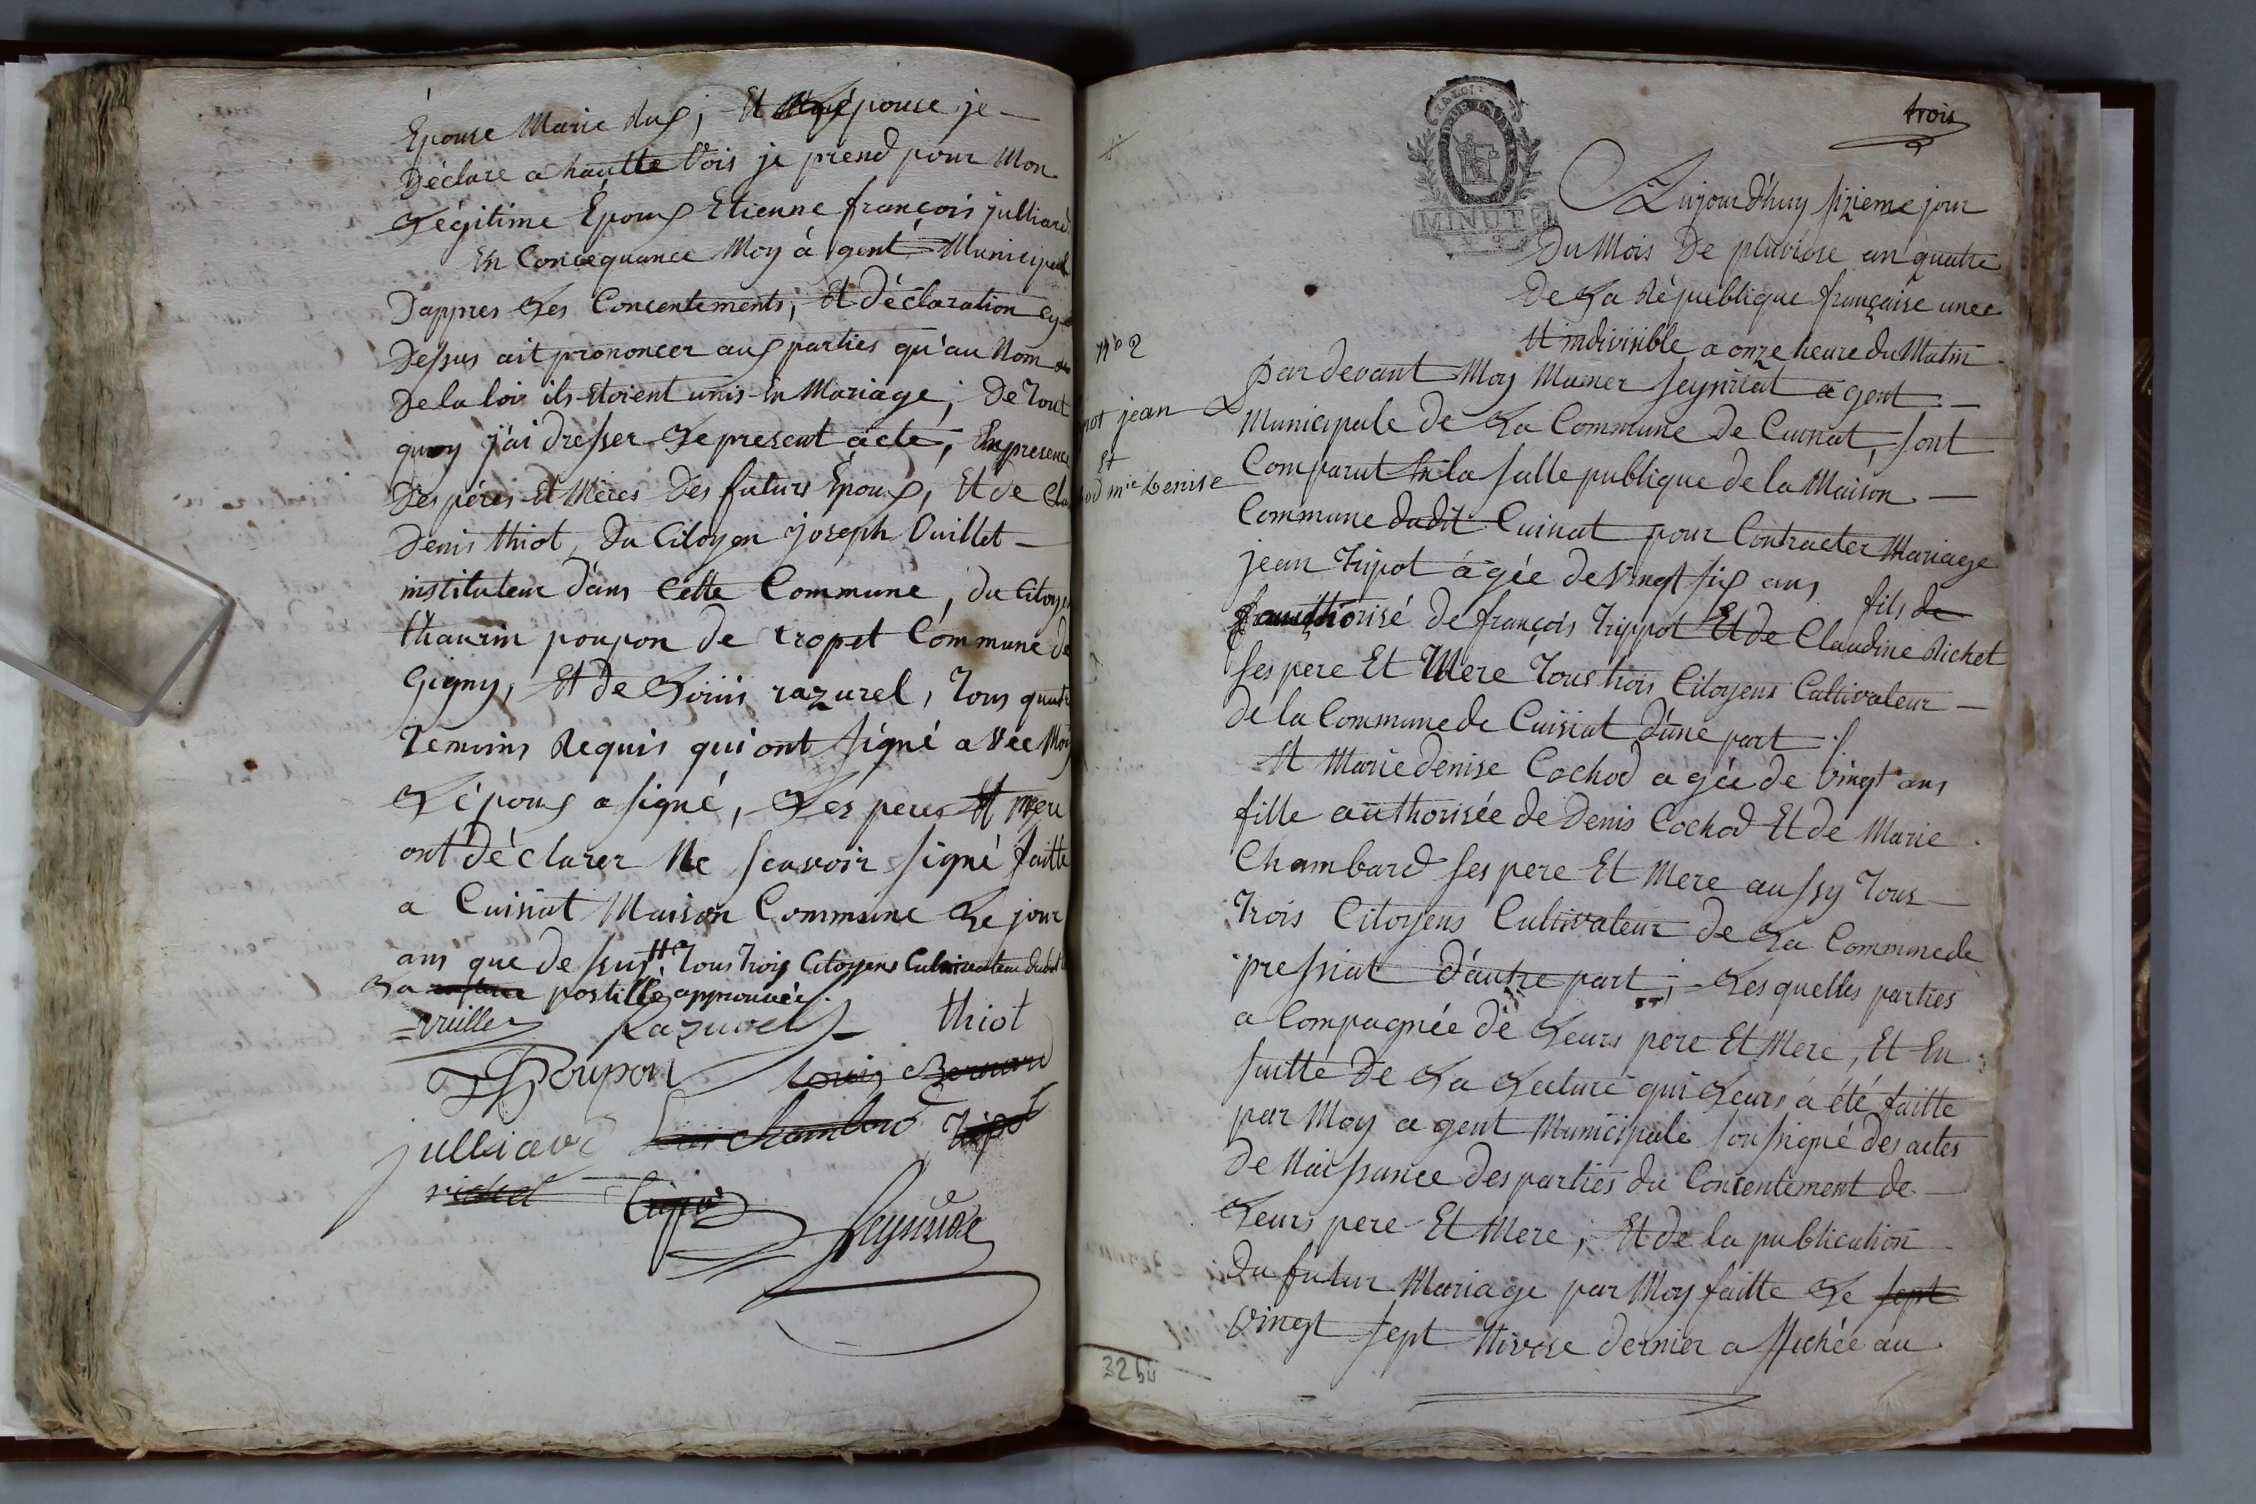 Épouse Marie Rux; Et épouse je
Déclare a hautte Vois je prend pour Mon
Légitime Époux Etienne françois julliard
En Consequance Moy á gent Municipal
Dappres Les Concentements; Et déclaration cy
Dessus ait prononcer aux parties qu'au Nom
De la loix ils étoient unis En Mariage; De Tout
quoy j'ai dresser Le present acte, En presence
Des péres Et Méres Des futurs Époux, Et de
Denis thiot, Du Citoyen joseph Vuillet
instituteur dans Cette Commune, du Citoyen
thaurin poupon de tropet Commune de
Gigny, Et de Louis razurel, Tous quatre
Temoins Requis qui ont signé a Vec Moy
L'époux a signé, Les peres Et mere
ont déclarer Ne scavoir signé faitte
a Cuisiat Maison Commune Le jour
ans que dessus # Tous Trois Citoyens Cultivateur dudit
La postille approuvée.
vuillet Razurel thiot
T Poupon Louis Bernard
julliard Chambard Tripot
richet Seynirat
trois
MINUTE
Aujourd'huy sizieme jour
Du Mois De pluviose an quatre
De La République française une
Et indivisible, a onze heure du Matin
N° 2
Par devant Moy Mamer seynirat a gent
not jean
Municipale de La Commune de Cuisiat, sont
Et
Comparut En la salle publique de la Maison
mie Denise
Commune dudit Cuisiat pour Contracter Mariage
jean Tripot ágée de Vingt six ans
fils de
authorisé de françois Trippot Et de Claudine Richet
ses pere Et Mere Tous trois Citoyens Cultivateur
de la Commune de Cuisiat d'une part
Et Marie denise Cochod a gée de Vingt ans
fille authorisée de Denis Cochod Et de Marie
Chambard ses pere Et Mere aussy Tous
Trois Citoyens Cultivateur de La Commune de
pressiat d'autre part; Les quelles parties
a Compagnée de Leurs pere Et Mere, Et En
suitte de La Lecture qui Leurs á été faitte
par Moy a gent Municipale soussigné des actes
de Naissance des parties du Concentement de
Leurs pere Et Mere; Et de la publication
du futur Mariage par Moy faitte Le sept
Vingt sept Nivose dernier a ffichée au